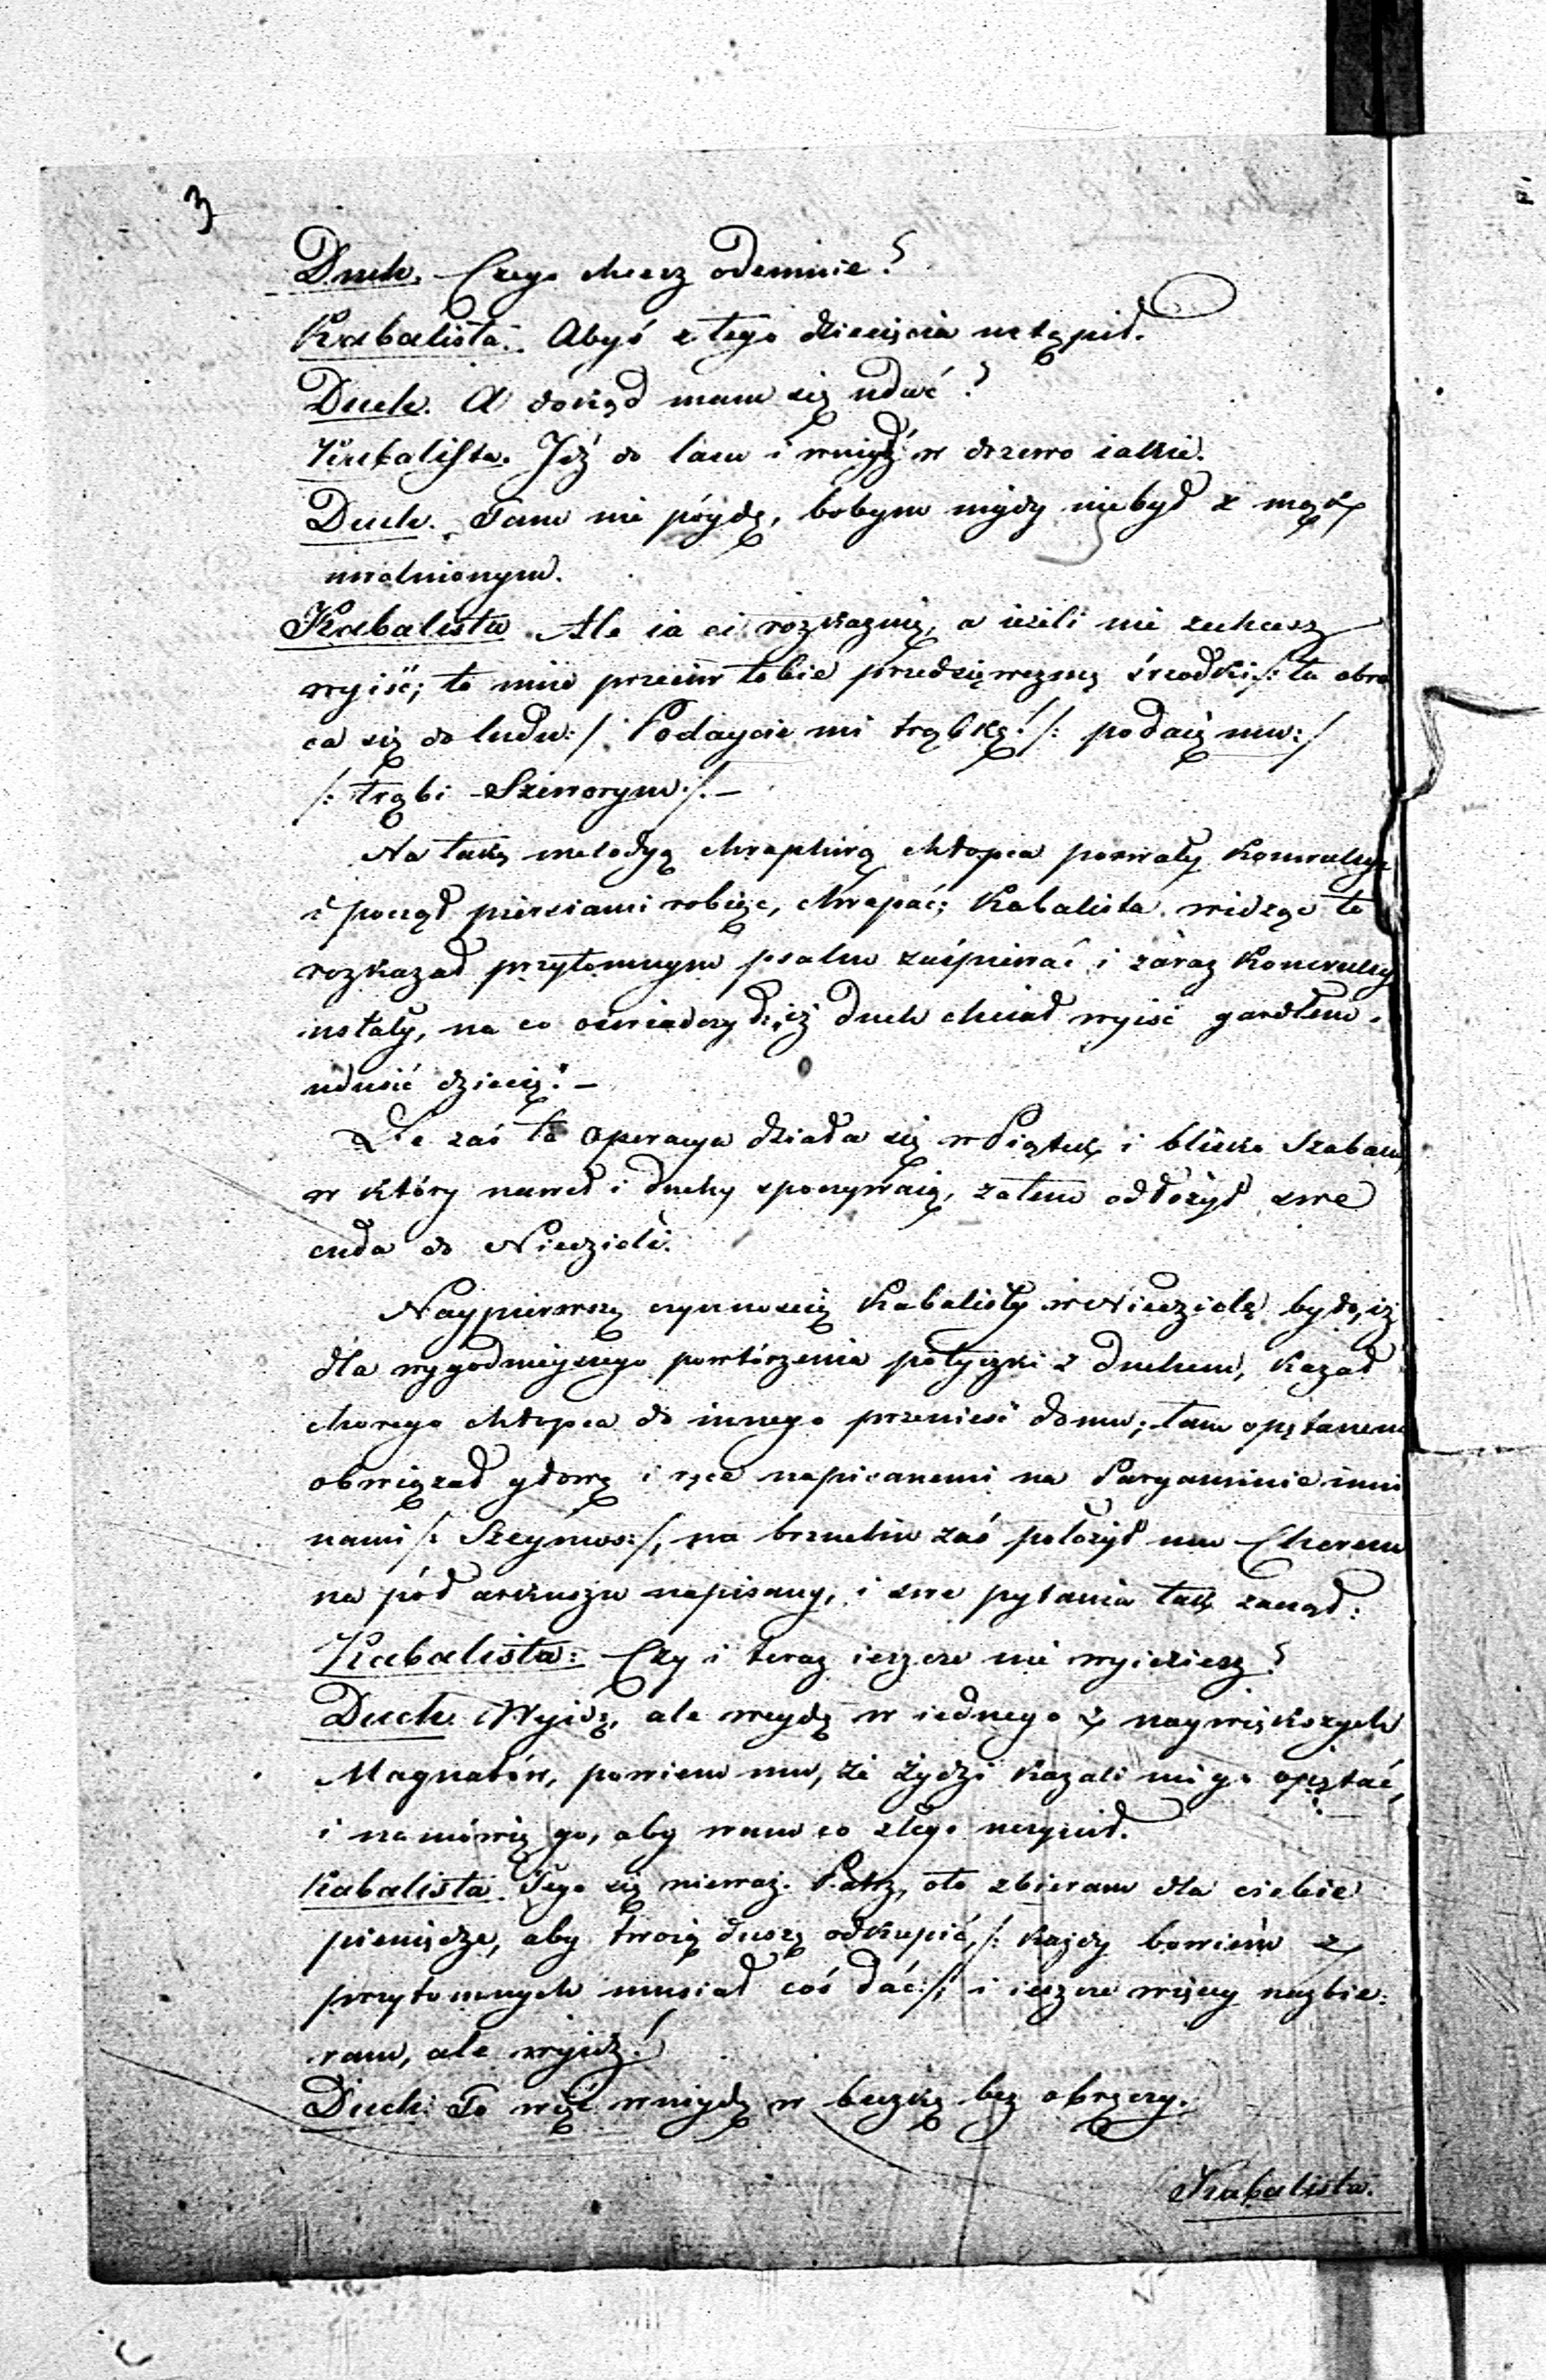 3
Duch. Czego chcesz odemnie?
Kabalista. Abyś z tego dziecięcia ustąpił.
Duch. A dokąd mam się udać?
Kabalista. Idź do lasu i wnijdź w drzewo iakie.
Duch. Tam nie póydę, bobym nigdy niebył z mąk
uwolnionym.
Kabalista Ale ia ci rozkazuię, a ieżeli nie zechcesz
wyiść, to inne przeciw tobie przedsięwezmę środki /: tu obra
ca się do ludu :/ Podaycie mi trąbkę! /: podaią mu :/
/: trąbi Szeworym :/. —
Na taką melodyą chrapliwą chłopca porwały konwulsye
i począł piersiami robiąc, chrapać; Kabalista widząc to
rozkazał przytomnym psalm zaśpiewać i zaraz konwulsye
ustały, na co oświadczył, iż duch chciał wyiść gardłem
udusić dziecię. —
Że zaś ta operacya działa się w Piątek i blisko Szabasu,
w który nawet i duchy spoczywaią, zatem odłożył swe
cuda do Niedzieli.
Naypierwszą czynnością Kabalisty w Niedzielę było, iż
dla wygodnieyszego powtórzenia potyczki z duchem, kazał
chorego chłopca do innego przenieść domu; tam opętanemu
obwiązał głowę i ręce napisanemi na Pargaminie imio
nami /: Szeymos :/, na brzuchu zaś położył mu Cherem
na pół arkuszu napisany, i swe pytania tak zaczął:
Kabalista: Czy i teraz ieszcze nie wyidziesz?
Duch. Wyidę, ale weydę w iednego z naywiększych
Magnatów, powiem mu, że żydzi kazali mi go opętać,
i namówię go, aby wam co złego uczynił.
Kabalista. Tego się nieważ. Patrz, oto zbieram dla ciebie
pieniądze, aby twoią duszę odkupić, /: każdy bowiem z
przytomnych musiał coś dać :/ i ieszcze więcey uzbie:
ram, ale wyidź!
Duch. To więc wnijdę w beczkę bez obręczy.
Kabalista.